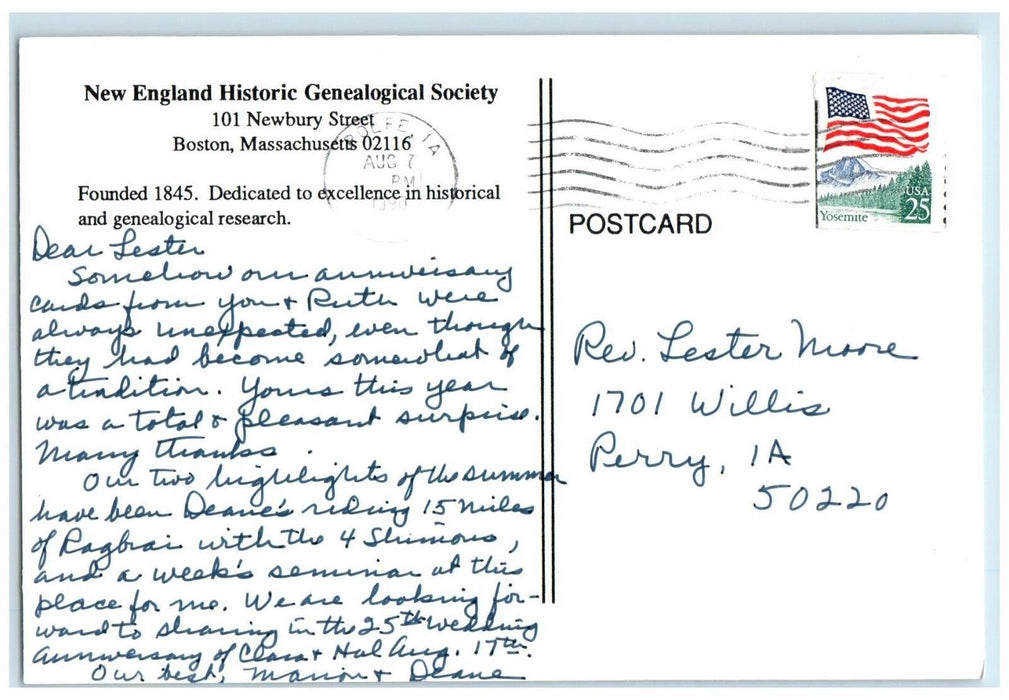 New England Historic Genealogical Society
101 Newbury Street
Boston, Massachusetts 02116
Founded 1845. Dedicated to excellence in historical
and genealogical research.
ROLFE, IA
AUG 7
PM
USA
25
Yosemite
POSTCARD
Dear Lester
Somehow our anniversary
cards from you & Ruth were
always unexpected, even though
they had become somewhat of
a tradition. Yours this year
was a total & pleasant surprise.
Many thanks.
Our two highlights of the summer
have been Deane's riding 15 miles
of Ragbrai with the 4 Shimons,
and a week's seminar at this
place for me. We are looking for-
ward to sharing in the 25th wedding
anniversary of Clara & Hal Aug. 17th.
Our best, Marion & Deane
Rev. Lester Moore
1701 Willis
Perry, IA
50220